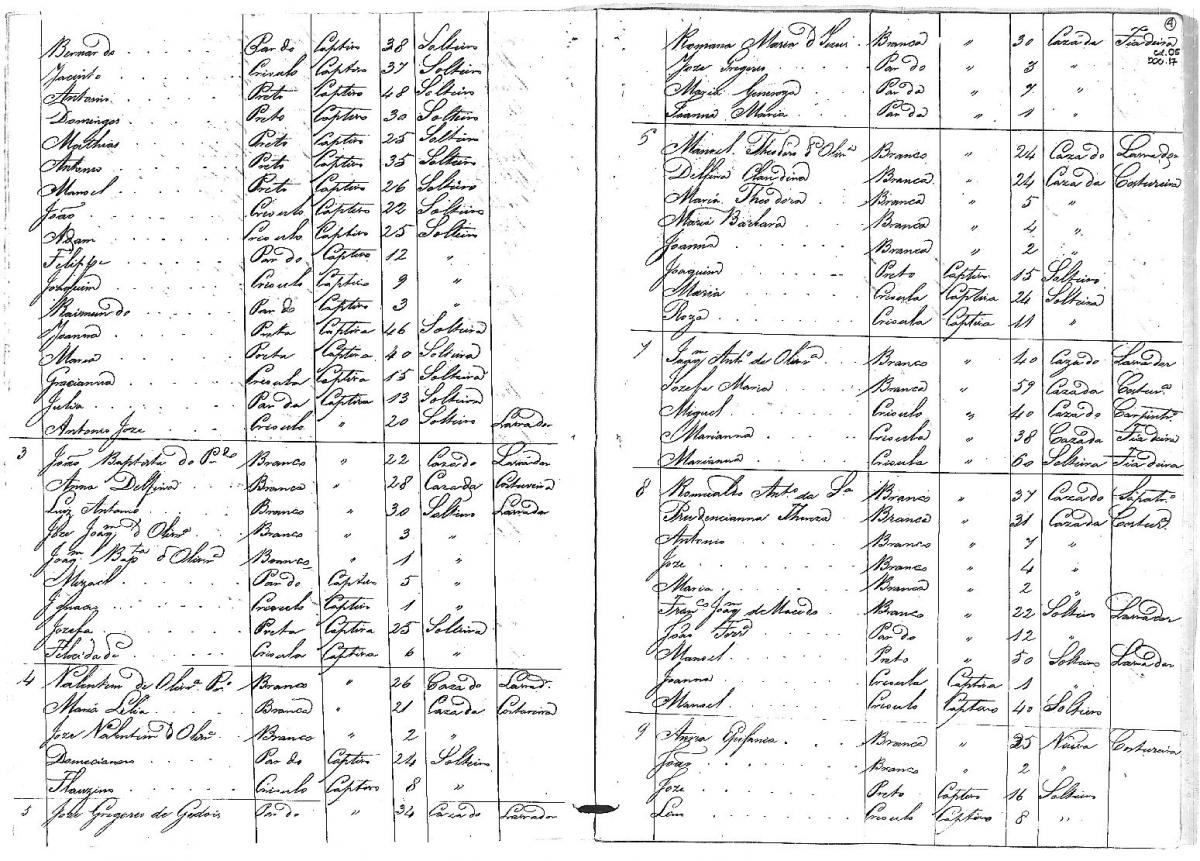 Bernardo Pardo Captivo 38 Solteiro
Jacinto Crioulo Captivo 37 Solteiro
Antonio Preto Captivo 48 Solteiro
Domingos Preto Captivo 30 Solteiro
Mathias Preto Captivo 25 Solteiro
Antonio Preto Captivo 35 Solteiro
Manoel Preto Captivo 26 Solteiro
João Crioulo Captivo 22 Solteiro
Adam Crioulo Captivo 25 Solteiro
Felippe Pardo Captivo 12 "
Joaquim Crioulo Captivo 9 "
Raimundo Pardo Captivo 3 "
Joanna Preta Captiva 46 Solteira
Maria Preta Captiva 40 Solteira
Gracianna Crioula Captiva 15 Solteira
Julia Parda Captiva 13 Solteira
Antonio Joze Crioulo " 20 Solteiro Lavrador
3 João Baptista do Branco " 22 Cazado Lavrador
Anna Delfina Branca " 28 Cazada Costureira
Luiz Antonio Branco " 30 Solteiro Lavrador
Joze Joaqm d Olivra Branco " 3 "
Joaqm Bapta d Olivra Branco " 1 "
Mizael Pardo Captivo 5 "
Ignacio Crioulo Captivo 1 "
Jozefa Preta Captiva 25 Solteira
Felicidade Crioula Captiva 6 "
4 Valentim de Olivra Branco " 26 Cazado Lavrad.
Maria Lelia Branca " 21 Cazada Costureira
Joze Valentim d Olivra Branco " 2 "
Domeciano Pardo Captivo 24 Solteiro
Flauzino Crioulo Captivo 8 "
5 Joze Gregorio de Godois Pardo " 34 Cazado Lavrador
4
Romana Maria d Jezus Branca " 30 Cazada Fiadeira
cx.06
DOC.17
Joze Gregorio Pardo " 3 "
Maria Parda " "
Joanna Maria Parda " 1 "
Manoel Theodoro d Olivra Branco " 24 Cazado Lavrador
Delfina Claudina Branca " 24 Cazada Costureira
Maria Theodora Branca " 5 "
Maria Barbara Branca " 4 "
Joanna Branca " 2 "
Joaquim Preto Captivo 15 Solteiro
Maria Crioula Captiva 24 Solteira
Roza Crioula Captiva 11 "
7 Joaqm Anto de Olivra Branco " 40 Cazado Lavrador
Jozefa Maria Branca " 59 Cazada Costura
Miguel Crioulo " 40 Cazado Carpintro
Marianna Crioula " 38 Cazada Fiadeira
Marianna Crioula " 60 Solteira Fiadeira
8 Romualdo Anto da Sa Branco " 37 Cazado Sapatro
Prudencianna Thereza Branca " 31 Cazada Costura
Antonio Branco " 7 "
Joze Branco " 4 "
Maria Branca " 2 "
Franco Joaqm de Macedo Branco " 22 Solteiro Lavrador
João Ferra Pardo " 12 "
Manoel Preto " 50 Solteiro Lavrador
Joanna Crioula Captiva 1 "
Manoel Crioulo Captivo 40 Solteiro
9 Anna Epifania Branca " 35 Viuva Costureira
João Branco " 2 "
Joze Preto Captivo 16 Solteiro
Crioulo Captivo 8 "